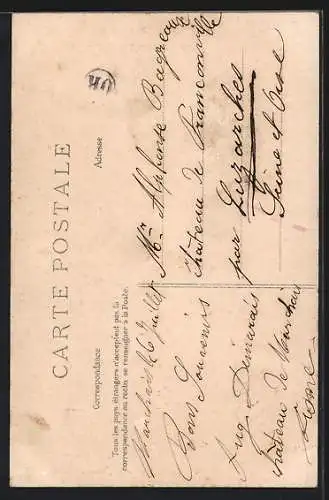 CARTE POSTALE
Correspondance
Adresse
Tous les pays étrangers n'acceptent pas la
correspondance au recto, se renseigner à la Poste.
Marchais 6 Juillet
Bons Souvenirs
Aug Demarais
Château de Marchais
Aisne
Mr Alphonse
Château de Franconville
par Luzarches
Seine et Oise